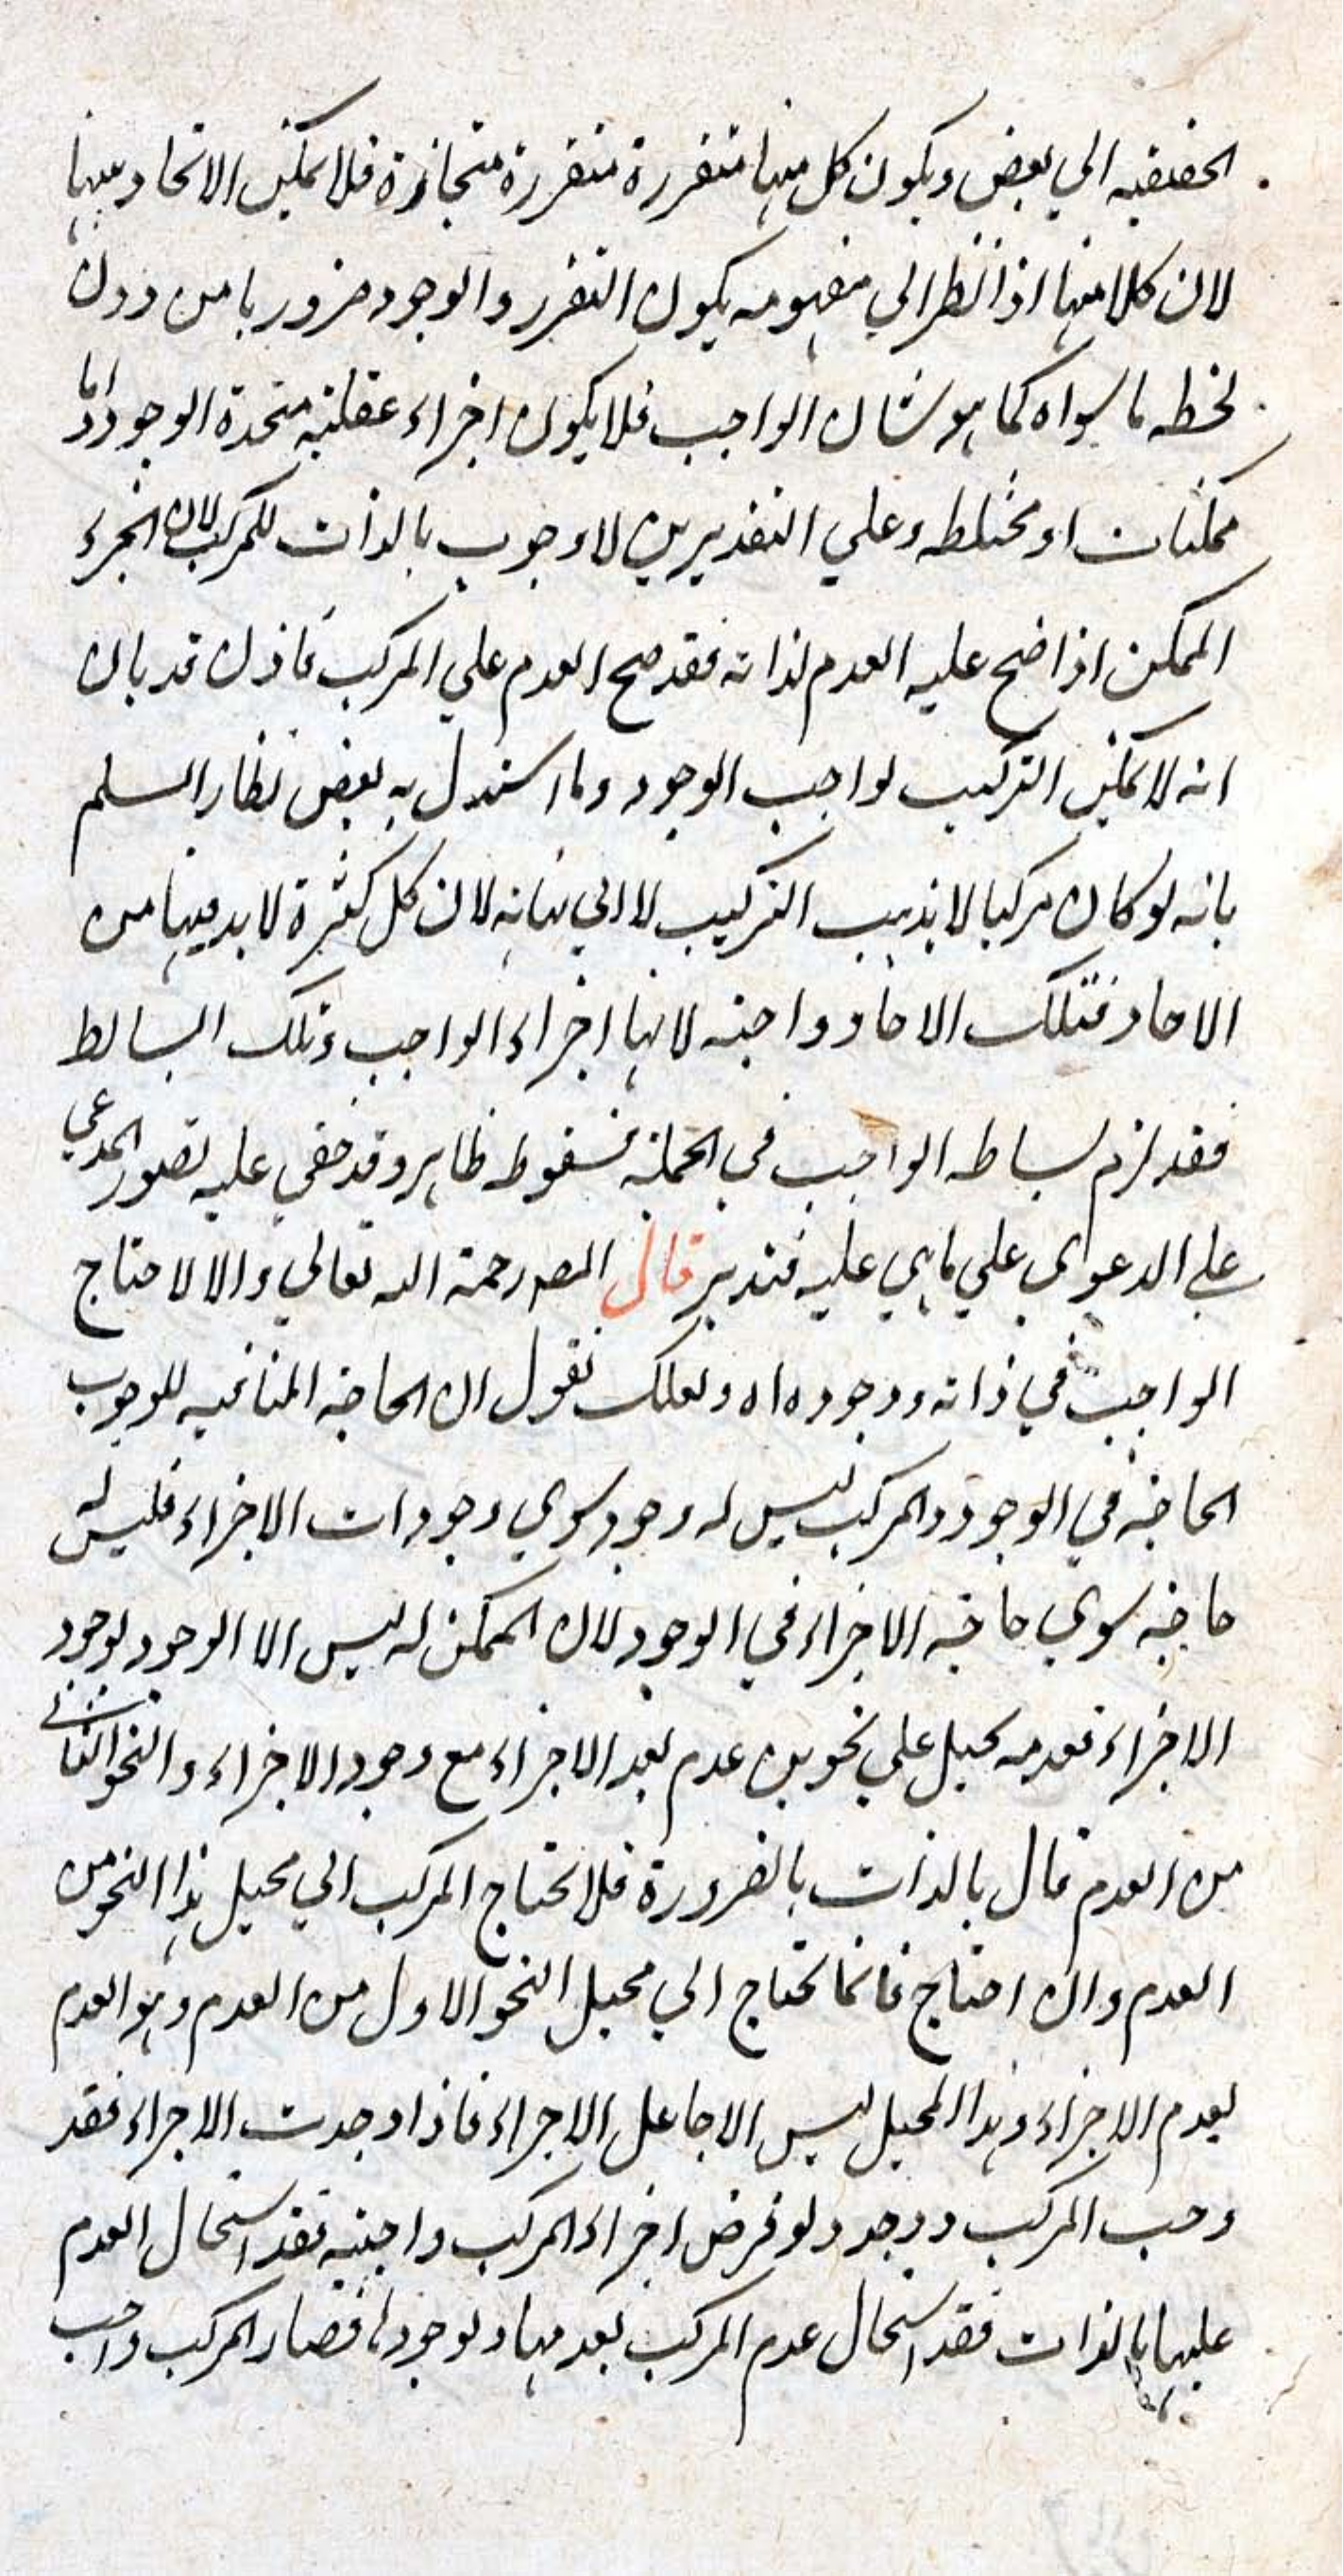 الحقيقيه الي بعض ويكون كل منها متقررة متقررة متجاذرة فلا يمكن الاتحاد بينها
لان كلا منها اذا نظر الي مفهومه يكون التقرر والوجود ضروريا من دون
لحظه ما سواه كما هو شان الواجب فلا يكون اجزاء عقلية متحدة الوجود واما
ممكنات او مختلطه وعلي التقديرين لا وجوب بالذات للمركب لان الجزء
الممكن اذا صح عليه العدم لذاته فقد صح العدم علي المركب فاذن قد بان
انه لا يمكن التركيب لواجب الوجود وما استدل به بعض نظار السلم
بانه لو كان مركبا لا يذهب التركيب لا الي نهاية لان كل كثرة لا بد فيها من
الاحاد فتلك الاحاد واجبه لانها اجزاء الواجب وتلك البسائط
فقد لزم بساطه الواجب في الجملة فسقوطه ظاهر وقد خفي عليه تصور المدعي
علي الدعوي علي ما هي عليه فتدبر قال المصه رحمة الله تعالي والا لاحتاج
الواجب في ذاته ووجوده اه ولعلك تقول ان الحاجة المنافيه للوجوب
الحاجة في الوجود والمركب ليس له وجود سوي وجودات الاجزاء فليس له
حاجة سوي حاجة الاجزاء في الوجود لان الممكن له ليس الا الوجود لوجود
الاجزاء فعدمه يحيل علي نحوين عدم بعد الاجزاء مع وجود الاجزاء والنحو الثاني
من العدم محال بالذات بالضرورة فلا يحتاج المركب الي محيل هذا النحو من
العدم وان احتاج فانما يحتاج الي محيل النحو الاول من العدم وهو العدم
بعدم الاجزاء وهذا المحيل ليس الا جاعل الاجزاء فاذا وجدت الاجزاء فقد
وجب المركب ووجد ولو فرض اجزاء المركب واجبية فقد استحال العدم
عليها بالذات فقد استحال عدم المركب بعدمها ولوجودها فصار المركب واجب